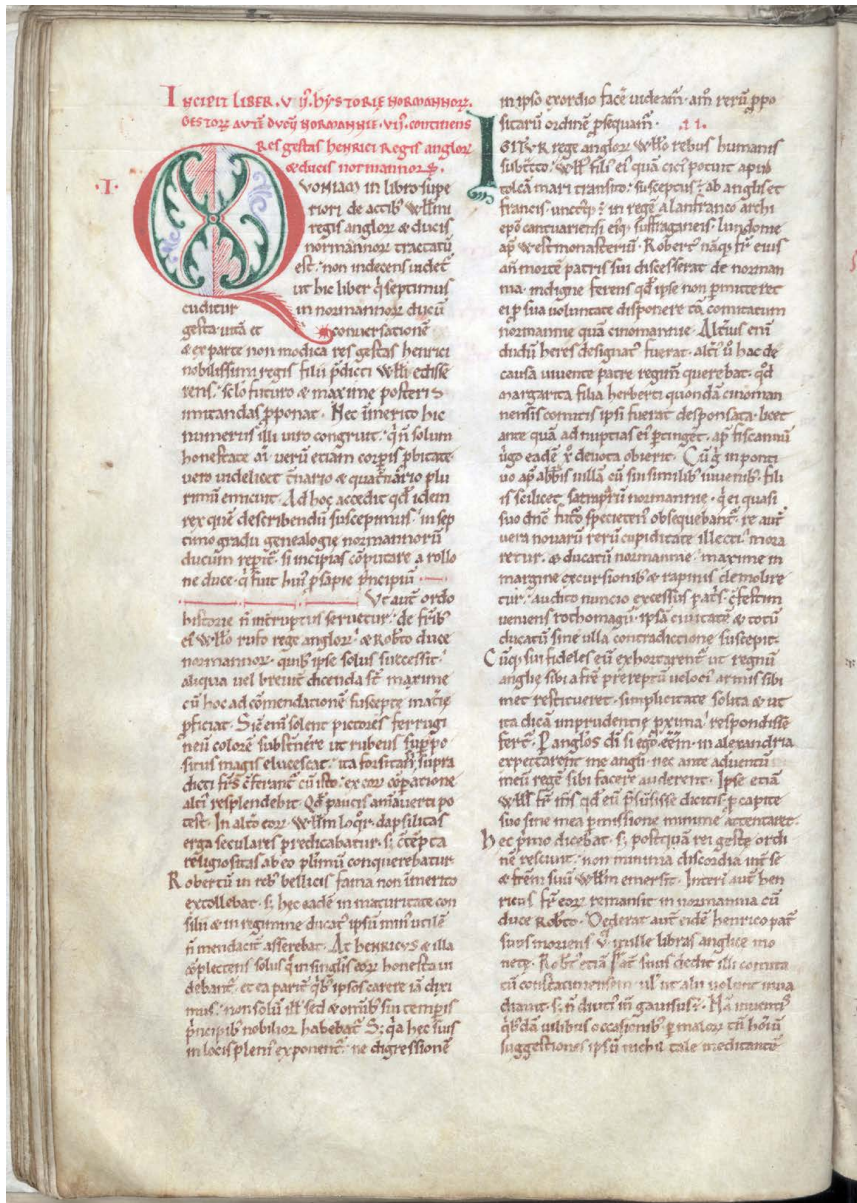 Incipit liber . vii . hystorie normannor̄.
Gestor̄ autē ducū normannie . vii . continens
res gestas henrici regis anglor̄
& ducis normannor̄.
.I.
QVONIAM in libro supe
riori de actib; willmi
regis anglor̄ & ducis
normannor̄ tractatū
est: non indecens uidet̄
ut hic liber q̄ septimus
cuditur in normannor̄ ducū
gesta uitā et conuersationē
& ex parte non modica res gestas henrici
nobilissimi regis filii p̄dicti willi edisse
rens: sclo futuro & maxime posteris
imitandas p̄ponat. Nec īmerito hic
numerus illi uiro congruit: q̄ n̄ solum
honestate aī uerū etiam corp̄is p̄bitate
uero uidelicet t̄nario & quat̄nario plu
rimū emicuit. Ad hoc accedit qd̄ idem
rex quē describendū suscepimus: in sep
timo gradu genealogie normannorū
ducum rep̄it̄: si incipias cōputare a rollo
ne duce. q̄ fuit hui' p̄sapie p̄ncipiū.
Vt aut̄ ordo
historie n̄ int̄ruptus seruetur: de fr̄ib;
ei' willo rufo rege anglor̄. & Robto duce
normannor̄. quib; ipse solus successit:
aliqua uel breuit̄ dicenda st̄ maxime
cū hoc ad cōmendationē suscepte mat̄ie
p̄ficiat. Sic enī solent pictores ferrugi
neū colorē subst̄nere ut rubeus sup̄po
situs magis elucescat: ita forsitan supra
dicti fr̄s c̄ferant̄ cū isto: ex cor̄ cōpatione
alti' resplendebit. Qd̄ paucis aīaduerti po
test. In alt̄o eor̄ willm loq̄r. dapsilitas
erga seculares predicabatur. s; c̄tēpta
religiositas ab eo plimū conquerebatur
Robertū in reb; bellicis fama non īmerito
extollebat. s; hec eadē in maturitate con
silii & in regimine ducat' ipsū min' utilē
n̄ mendacit̄ asserebat. At HENRICVS & illa
cōplectens solus q̄ in singlis eor̄ honesta ui
debant̄. et ea parit̄ q̄b; ipsos carere iā dixi
mus: non solū ill' sed & omib; sui temp̄is
p̄ncipib; nobilior habebat̄. S; q̄a hec suis
in locis pleni' exponent̄: ne digressionē
in ipso exordio facē uideam̄. am rerū p̄po
sitarū ordinē p̄sequam̄. .II.
IGITVR rege anglor̄ willo rebus humanis
subt̄cto: will' fili' ei' quā cici' potuit apud
tolcā mari transito: suscept' ē ab anglis et
francis. unct'q; ē in regē a lanfranco archi
epō cantuariensi eiq; suffraganeis. lundonie
ap̄ westmonasteriū. Robert' nāq; fr̄ eius
an̄ mortē patris sui discesserat de norman
nia. indigne ferens qd̄ ipse non p̄mitteret
ei p̄ sua uoluntate disponere tā comitatum
normannie quā cinomannie. Alt̄ius enī
dudū heres designat' fuerat. alt̄i' ū hac de
causa uiuente patre regimē querebat. qd̄
margarita filia herberti quondā cinoman
nensis comitis ipsi fuerat desponsata. licet
ante quā ad nuptias ei' p̄tinget̄. ap̄ fiscannū
uirgo eadē x̄ deuota obierit. Cū g̃ in ponti
uo ap̄ abbis uillā cū sui similib; iuuenib; fili
is scilicet satraparū normannie. q̄ ei quasi
suo dn̄o fut̄o specieten' obsequebant̄. re aut̄
uera nouarū rerū cupiditate illecti: mora
retur. & ducatū normannie: maxime in
margine excursionib; & rapinis demolire
tur: audito nuncio excessus pat̄s. c̄festim
ueniens rothomagū: ipsā ciuitatē & totū
ducatū sine ulla contradictione suscepit.
Cūq; sui fideles eū exhortarent̄ ut regnū
anglie sibi a fr̄e prereptū ueloci' armis sibi
met restitueret. simplicitate solita & ut
ita dicā imprudentie p̄xima respondisse
fert̄. P anglos di si ego eēm in alexandria
expectarent me angli. nec ante aduentū
meū regē sibi facere auderent. Ipse etiā
will' fr̄ m̄s qd̄ eū p̄sūsisse dicitis. p̄ capite
suo sine mea p̄missione minime attentaret.
Hec p̄mo dicebat. s; postquā rei geste ordi
nē resciuit: non minima discordia int̄ se
& fr̄em suū willm emersit. Interi aut̄ hen
ricus fr̄ eor̄ remansit in normannia cū
duce Robto. Dederat aut̄ eidē henrico pat̄
suus moriens v mille libras anglice mo
nete. Robt' etiā fr̄at̄ suus dedit illi comita
tū constatiniensem. ul' ut alii uolunt inua
diauit. s; n̄ diuti' in gauisus ē. Nā inuenti'
q̄b'dā uilibus occasionib; p̄ malor̄ tn̄ hoīum
suggestiones ipsū nichil tale meditantē